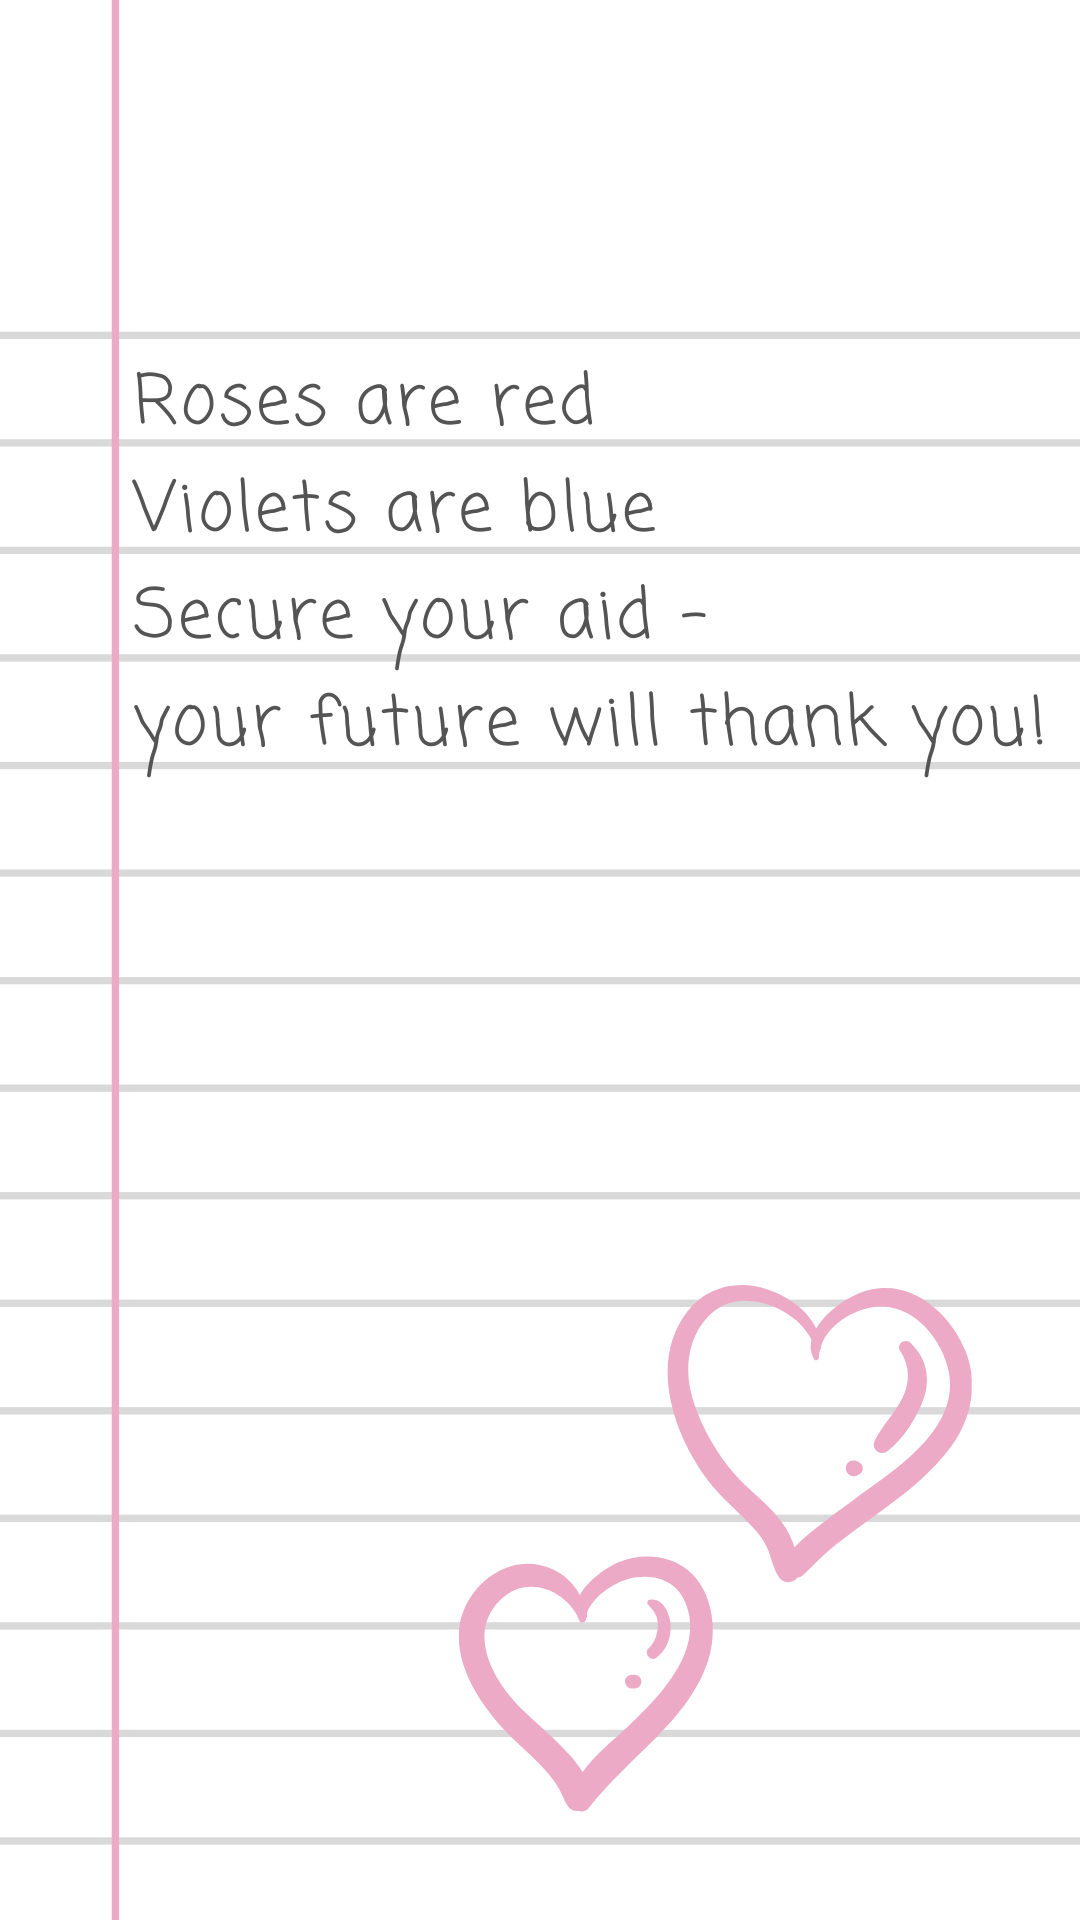 Roses are red
Violets are blue
Secure your aid -
your future will thank you!